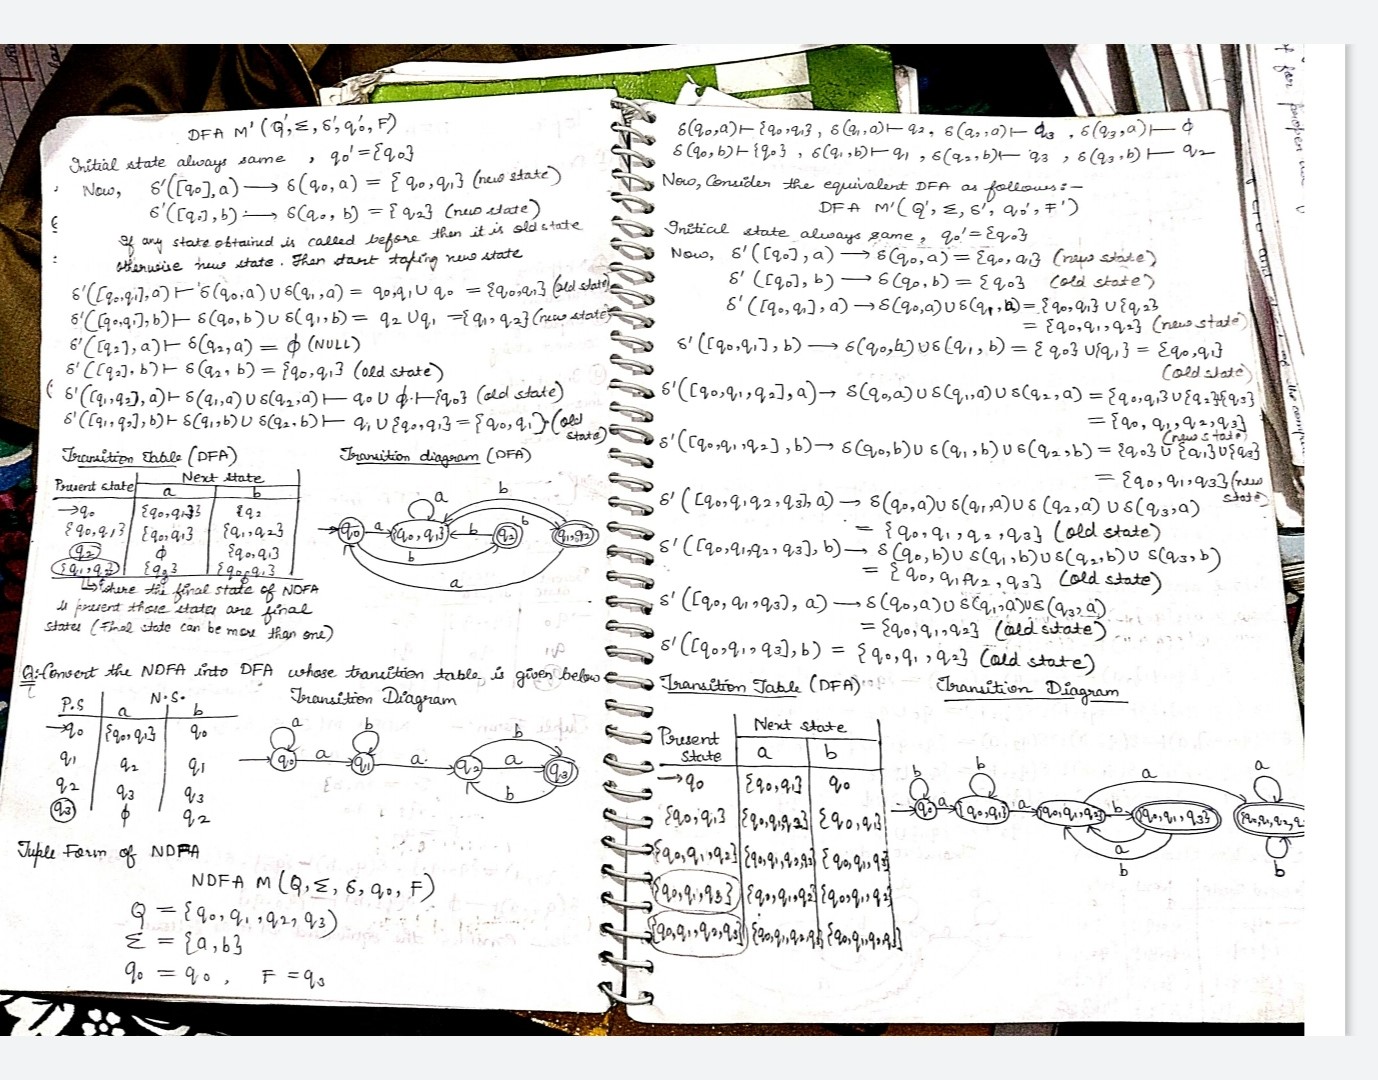 DFA M'(Q',Σ,δ',q₀',F')
Initial state always same , q₀'={q₀}
Now, δ'([q₀],a) ⟶ δ(q₀,a) = {q₀,q₁} (new state)
δ'([q₀],b) ⟶ δ(q₀,b) = {q₂} (new state)
If any state obtained is called before then it is old state
otherwise new state. Then start taking new state
δ'([q₀,q₁],a)⊢ δ(q₀,a)∪δ(q₁,a) = q₀,q₁ ∪ q₀ = {q₀,q₁} (old state)
δ'([q₀,q₁],b)⊢ δ(q₀,b)∪δ(q₁,b) = q₂∪q₁ ={q₁,q₂}(new state)
δ'([q₂],a)⊢ δ(q₂,a) = ϕ (NULL)
δ'([q₂],b)⊢ δ(q₂,b) = {q₀,q₁} (old state)
δ'([q₁,q₂],a)⊢ δ(q₁,a)∪δ(q₂,a)⊢ q₀∪ϕ⊢{q₀} (old state)
δ'([q₁,q₂],b)⊢ δ(q₁,b)∪δ(q₂,b)⊢ q₁∪{q₀,q₁}={q₀,q₁}(old state)
Transition Table (DFA) Transition diagram (DFA)
Present state Next state
a b
→q₀ {q₀,q₁} {q₂
{q₀,q₁} {q₀,q₁} {q₁,q₂}
q₂ ϕ {q₀,q₁}
{q₁,q₂} {q₀} {q₀,q₁}
q₀ a {q₀,q₁} a b q₂ b b q₁,q₂ b a
where the final state of NDFA
is present those states are final
states (Final state can be more than one)
Q:-Convert the NDFA into DFA whose transition table is given below
P.S N.S. Transition Diagram
a b
→q₀ {q₀,q₁} q₀
q₁ q₂ q₁
q₂ q₃ q₃
q₃ ϕ q₂
a b b
q₀ a q₁ a q₂ a q₃
b
Tuple Form of NDFA
NDFA M(Q,Σ,δ,q₀,F)
Q = {q₀,q₁,q₂,q₃)
Σ = {a,b}
q₀ = q₀ , F = q₃
δ(q₀,a)⊢{q₀,q₁}, δ(q₁,a)⊢q₂, δ(q₂,a)⊢ q₃ , δ(q₃,a)⊢ ϕ
δ(q₀,b)⊢{q₀} , δ(q₁,b)⊢q₁ , δ(q₂,b)⊢ q₃ , δ(q₃,b)⊢ q₂
Now, Consider the equivalent DFA as follows:-
DFA M'(Q',Σ,δ',q₀',F')
Initial state always same, q₀'={q₀}
Now, δ'([q₀],a) ⟶ δ(q₀,a)={q₀,q₁} (new state)
δ'([q₀],b) ⟶ δ(q₀,b) = {q₀} (old state)
δ'([q₀,q₁],a) →δ(q₀,a)∪δ(q₁,a)={q₀,q₁}∪{q₂}
= {q₀,q₁,q₂} (new state)
δ'([q₀,q₁],b) ⟶ δ(q₀,b)∪δ(q₁,b)={q₀}∪{q₁}={q₀,q₁}
(old state)
δ'([q₀,q₁,q₂],a)→ δ(q₀,a)∪δ(q₁,a)∪δ(q₂,a) = {q₀,q₁}∪{q₂}{q₃}
= {q₀,q₁,q₂,q₃}
(new state)
δ'([q₀,q₁,q₂],b)→ δ(q₀,b)∪δ(q₁,b)∪δ(q₂,b)={q₀}∪{q₁}∪{q₃}
= {q₀,q₁,q₃}(new state)
δ'([q₀,q₁,q₂,q₃],a) → δ(q₀,a)∪δ(q₁,a)∪δ(q₂,a)∪δ(q₃,a)
= {q₀,q₁,q₂,q₃} (old state)
δ'([q₀,q₁,q₂,q₃],b)→ δ(q₀,b)∪δ(q₁,b)∪δ(q₂,b)∪ δ(q₃,b)
= {q₀,q₁,q₂,q₃} (old state)
δ'([q₀,q₁,q₃),a) ⟶δ(q₀,a)∪δ(q₁,a)∪δ(q₃,a)
={q₀,q₁,q₂} (old state)
δ'([q₀,q₁,q₃],b) = {q₀,q₁,q₂} (old state)
Transition Table (DFA) Transition Diagram
Present state Next state
a b
→q₀ {q₀,q₁} q₀
{q₀,q₁} {q₀,q₁,q₂} {q₀,q₁}
{q₀,q₁,q₂} {q₀,q₁,q₂,q₃} {q₀,q₁,q₃}
{q₀,q₁,q₃} {q₀,q₁,q₂} {q₀,q₁,q₂}
{q₀,q₁,q₂,q₃} {q₀,q₁,q₂,q₃} {q₀,q₁,q₂,q₃}
b b a a
q₀ a {q₀,q₁} a {q₀,q₁,q₂} b {q₀,q₁,q₃} {q₀,q₁,q₂,q
a b b